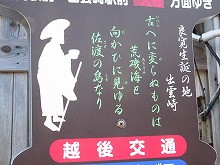 出雲崎駅前
方面ゆき
良寛生誕の地
出雲崎
古へに変らぬものは
荒磯海と
向かひに見ゆる
佐渡の島なり
越後交通